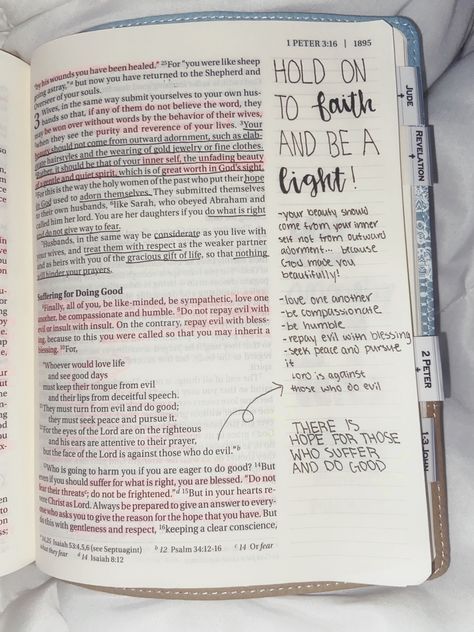 1 PETER 3:16 | 1895
"by his wounds you have been healed." 25For "you were like sheep
going astray," a but now you have returned to the Shepherd and
Overseer of your souls.
3 Wives, in the same way submit yourselves to your own hus-
bands so that, if any of them do not believe the word, they
may be won over without words by the behavior of their wives,
when they see the purity and reverence of your lives. 3Your
beauty should not come from outward adornment, such as elab-
orate hairstyles and the wearing of gold jewelry or fine clothes.
Rather, it should be that of your inner self, the unfading beauty
of a gentle and quiet spirit, which is of great worth in God's sight.
For this is the way the holy women of the past who put their hope
in God used to adorn themselves. They submitted themselves
to their own husbands, 6like Sarah, who obeyed Abraham and
called him her lord. You are her daughters if you do what is right
and do not give way to fear.
Husbands, in the same way be considerate as you live with
your wives, and treat them with respect as the weaker partner
and as heirs with you of the gracious gift of life, so that nothing
will hinder your prayers.
Suffering for Doing Good
8Finally, all of you, be like-minded, be sympathetic, love one
another, be compassionate and humble. 9Do not repay evil with
evil or insult with insult. On the contrary, repay evil with bless-
ing, because to this you were called so that you may inherit a
blessing. 10For,
"Whoever would love life
and see good days
must keep their tongue from evil
and their lips from deceitful speech.
They must turn from evil and do good;
they must seek peace and pursue it.
12For the eyes of the Lord are on the righteous
and his ears are attentive to their prayer,
but the face of the Lord is against those who do evil." b
13Who is going to harm you if you are eager to do good? 14But
even if you should suffer for what is right, you are blessed. "Do not
fear their threats c; do not be frightened." d 15But in your hearts re-
vere Christ as Lord. Always be prepared to give an answer to every-
one who asks you to give the reason for the hope that you have. But
do this with gentleness and respect, 16keeping a clear conscience,
24,25 Isaiah 53:4,5,6 (see Septuagint) b 12 Psalm 34:12-16 c 14 Or fear
what they fear d 14 Isaiah 8:12
HOLD ON
TO faith
AND BE A
light!
-your beauty should
come from your inner
self not from outward
adornment... because
God made you
beautifully!
-love one another
-be compassionate
-be humble
-repay evil with blessing
-seek peace and pursue
it
Lord is against
those who do evil
THERE IS
HOPE FOR THOSE
WHO SUFFER
AND DO GOOD
JUDE
REVELATION
2 PETER
1-3 JOHN